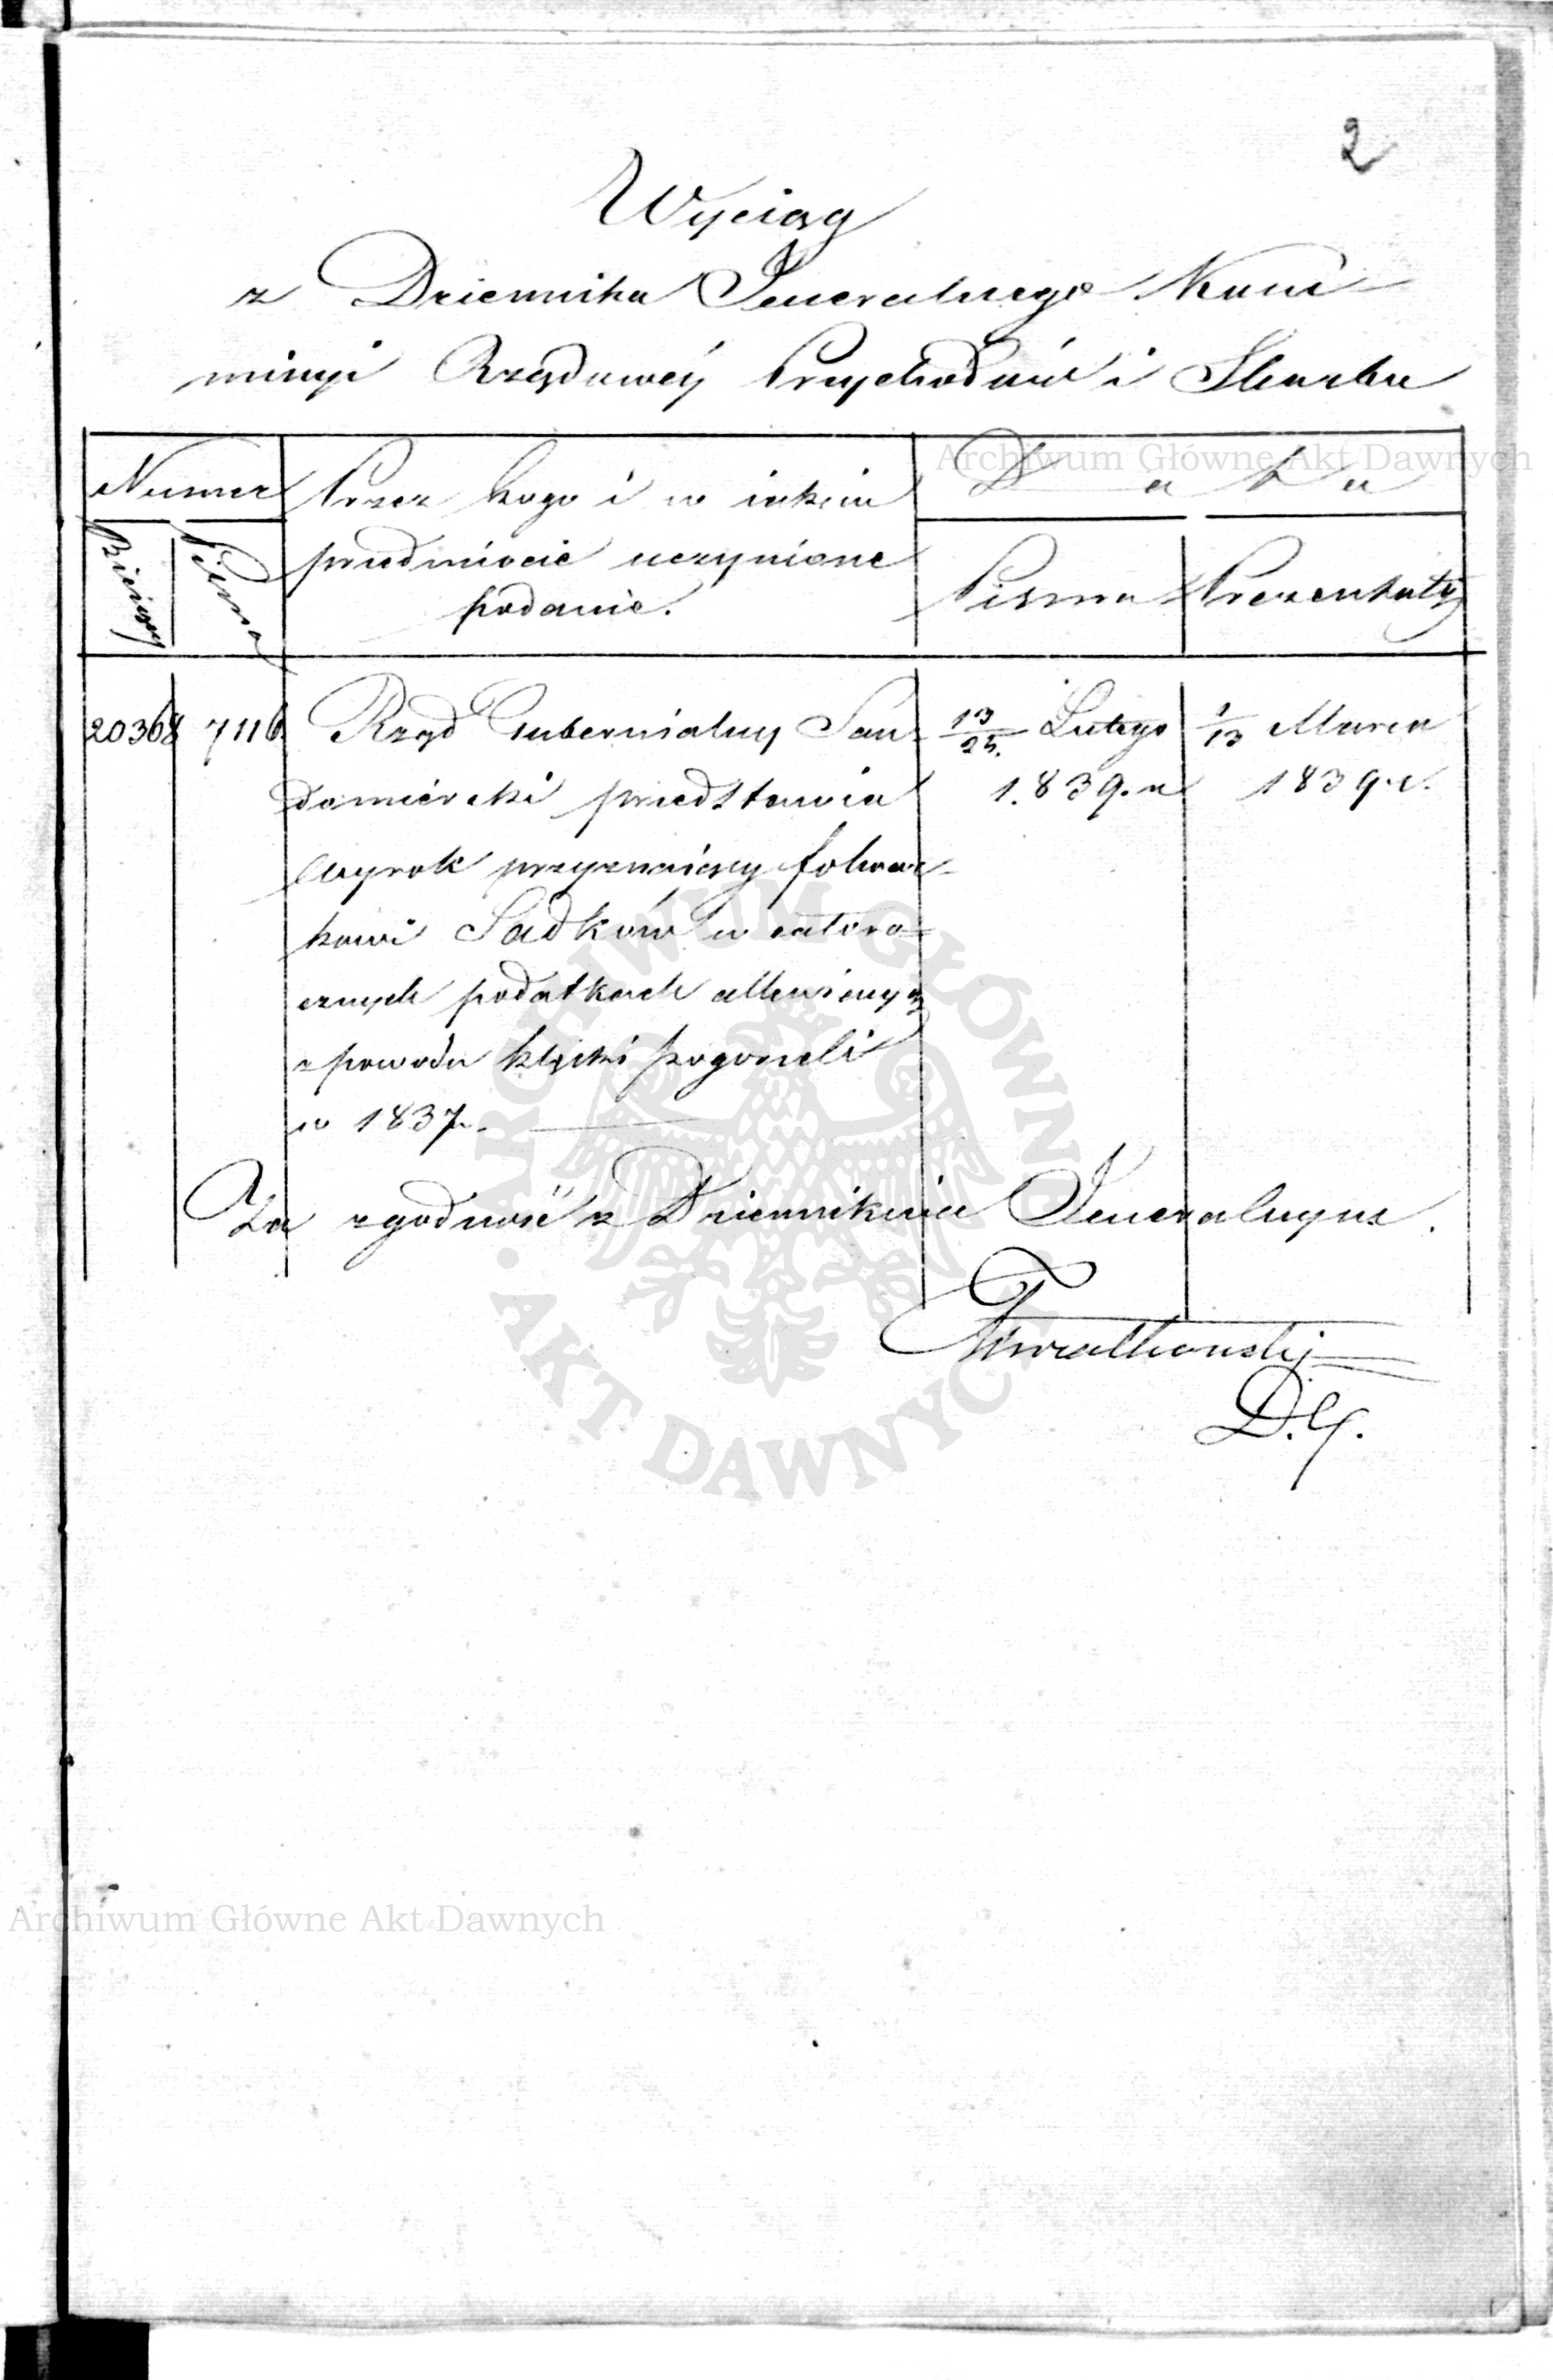 2
Wyciąg
z Dziennika Jeneralnego Kom-
missyi Rządowey Przychodów i Skarbu
Numer
Bieżący
Pisma
Przez kogo i w iakim
przedmiocie uczynione
podanie.
Data
Pisma
Prezentaty
20368 7116
Rząd Gubernialny San-
domierski przedstawia
wyrok przyznaiący folwar-
kowi Sadków w cutoro-
cznych podatkach allewiacyą
z powodu klęski pogorzeli
w 1837 r.
13/25. Lutego
1.839. r.
1/13 Marca
1839 r.
Za zgodność z Dziennikiem Jeneralnym.
D.G.
Archiwum Główne Akt Dawnych
ARCHIWUM GŁÓWNE AKT DAWNYCH
Archiwum Główne Akt Dawnych